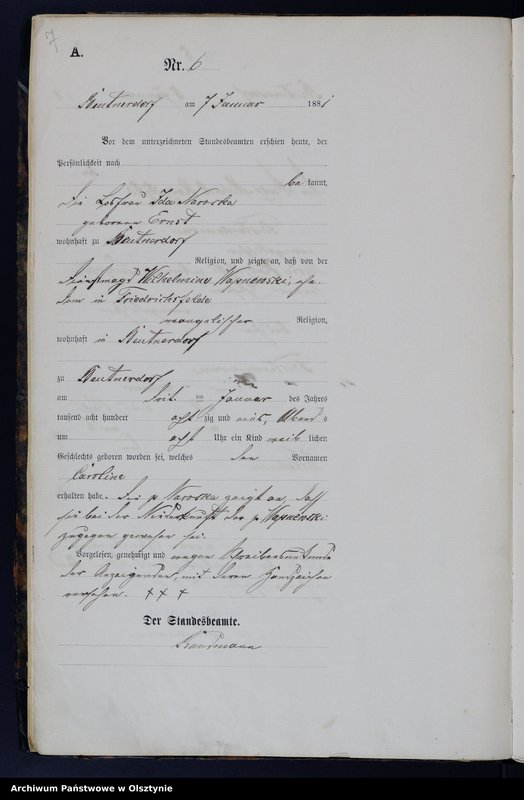 7
A.
Nr. 6
Reutnerdorf am 7 Januar 1881
Vor dem unterzeichneten Standesbeamten erschien heute, der
Persönlichkeit nach
be kannt,
die Losfrau Ida Naroska
geborene Ernst
wohnhaft zu Reutnerdorf
Religion, und zeigte an, daß von der
Dienstmagd Wilhelmine Wapnewski, ehe-
dem in Friedrichsfelde
evangelischer Religion,
wohnhaft in Reutnerdorf
zu Reutnerdorf
am dritten Januar des Jahres
tausend acht hundert acht zig und eins, Abends
um acht Uhr ein Kind weib lichen
Geschlechts geboren worden sei, welches den Vornamen
Caroline
erhalten habe. Die p Naroska zeigt an, daß
sie bei der Niederkunft der p Wapnewski
zugegen gewesen sei.
Vorgelesen, genehmigt und wegen Schreibensunkunde
der Anzeigenden, mit deren Handzeichen
versehen. + + +
Der Standesbeamte.
Archiwum Państwowe w Olsztynie